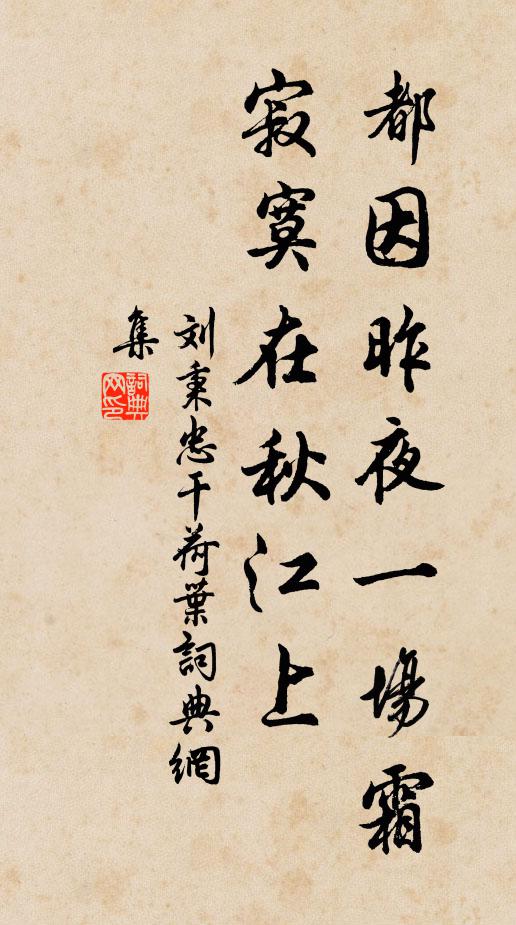 都因昨夜一場霜
寂寞在秋江上
刘秉忠干荷葉詞典網
集
詞典
网印